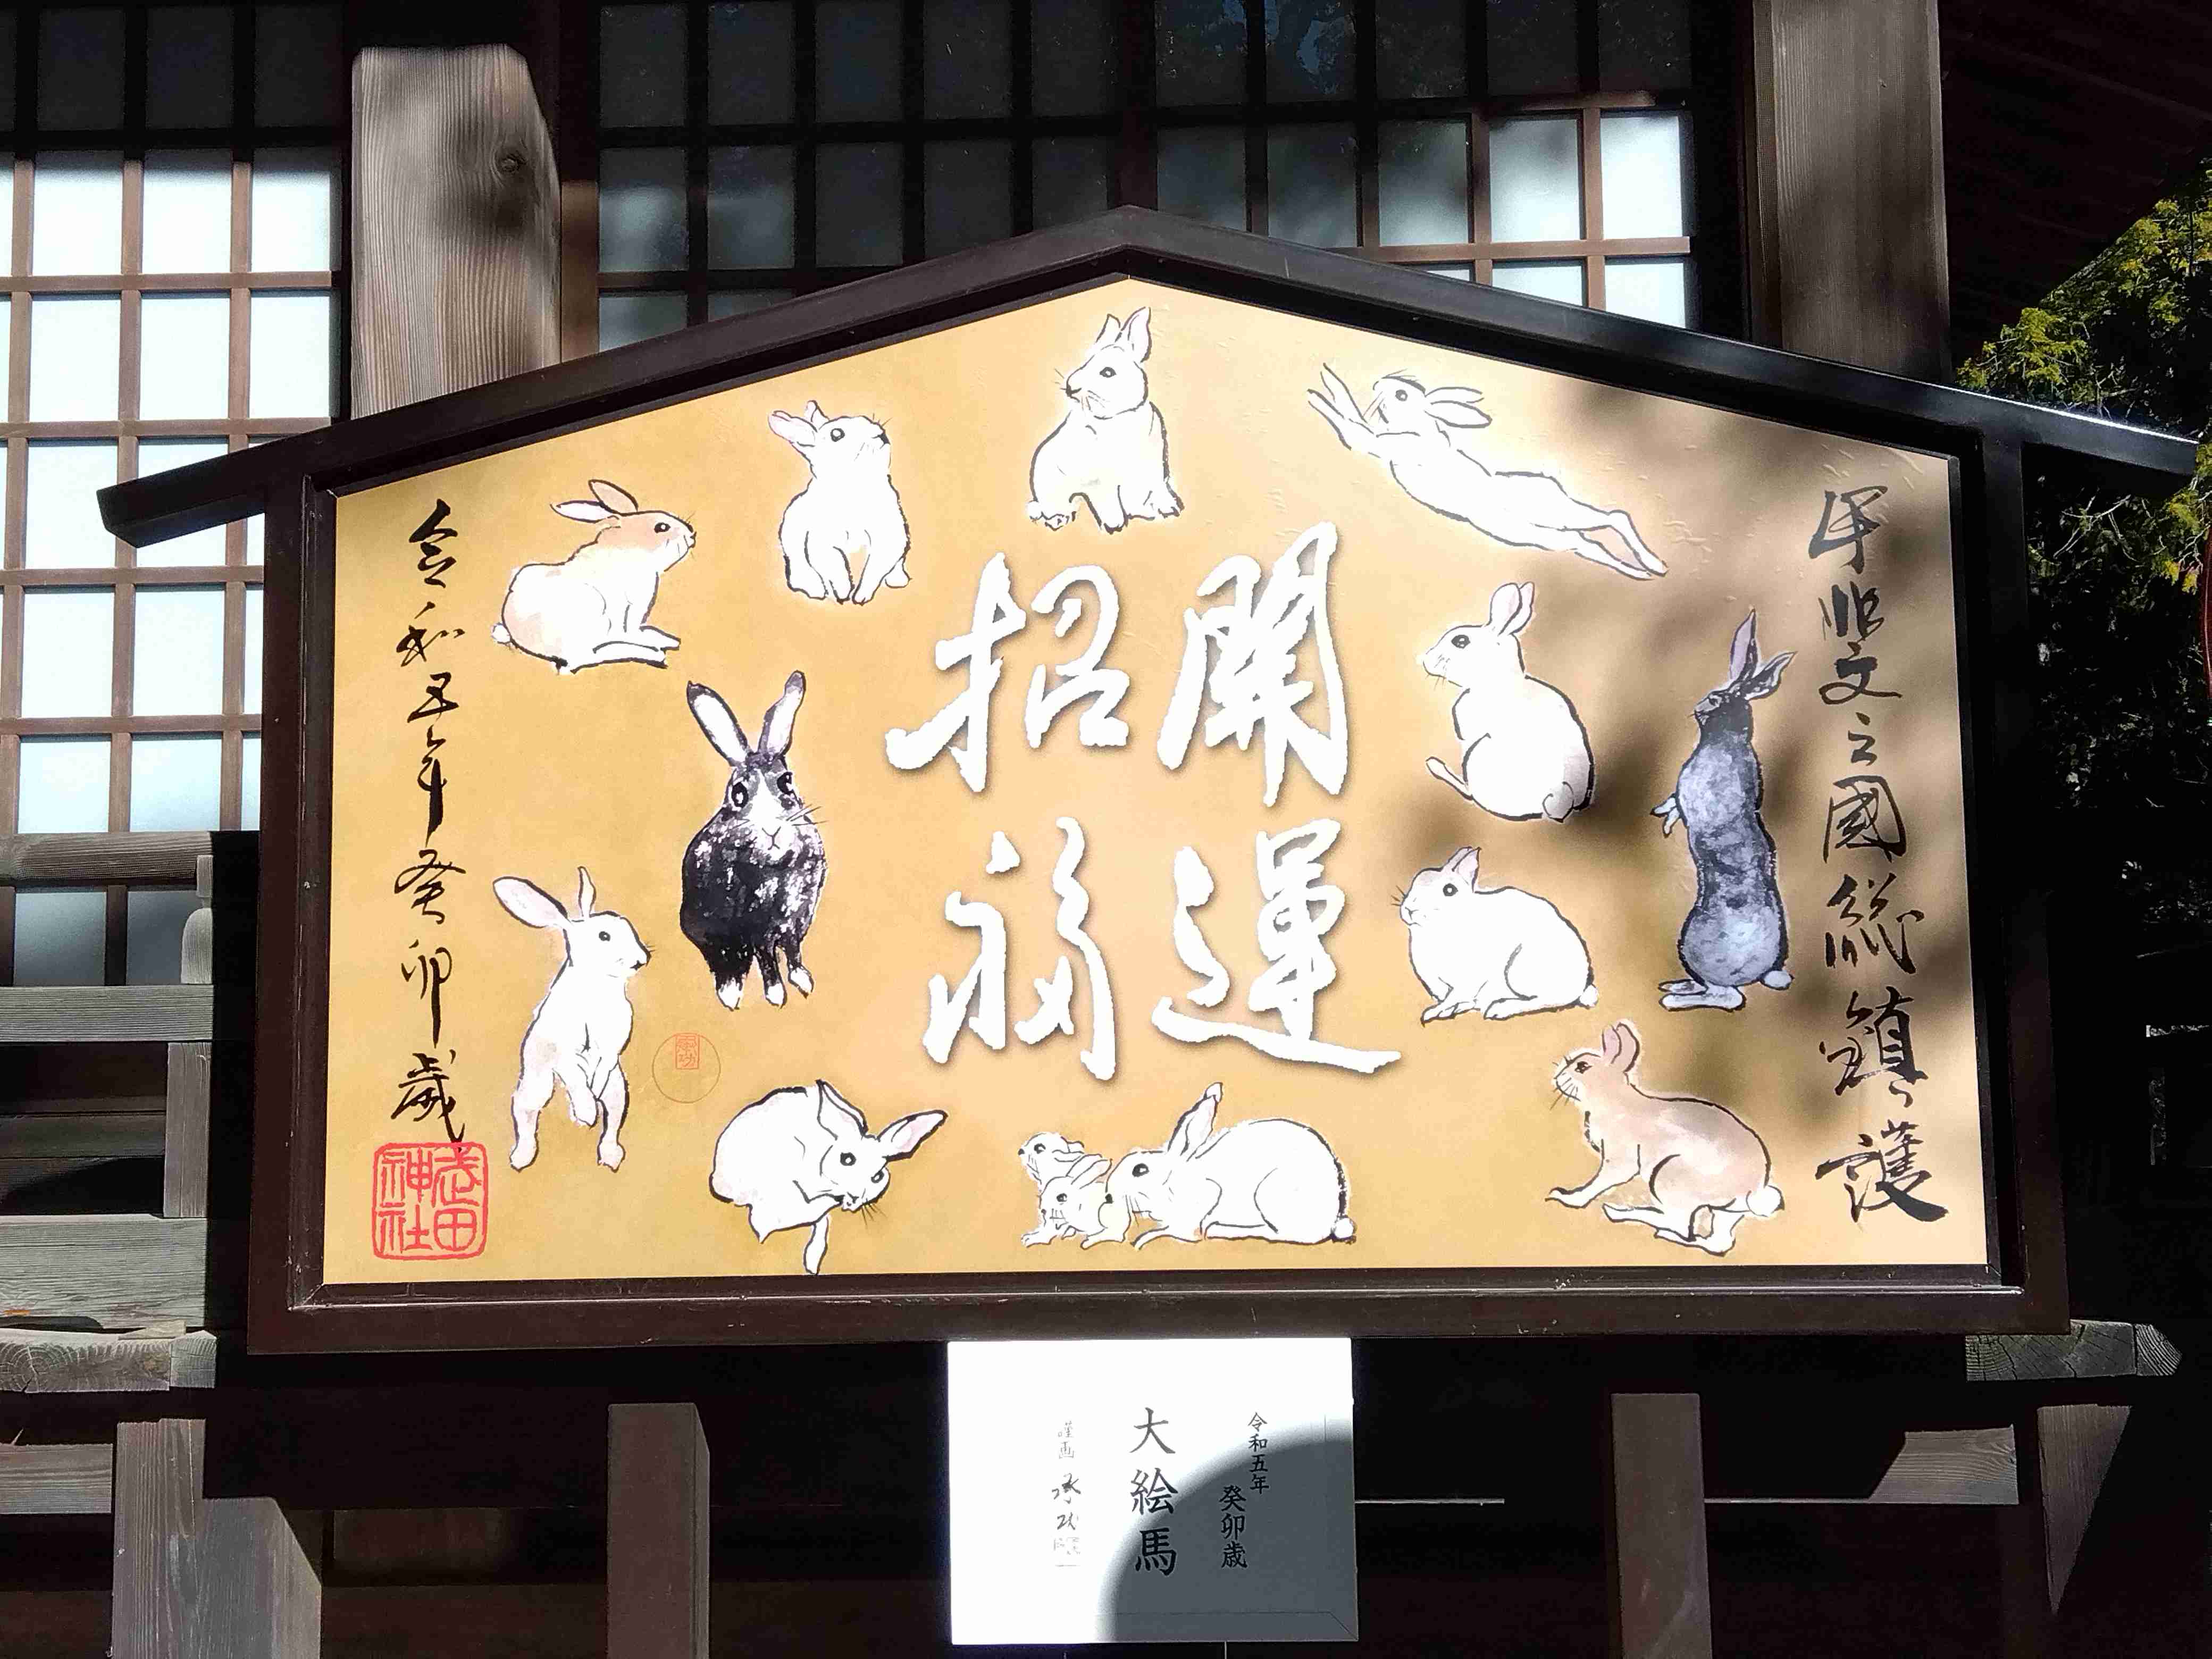 甲斐之國総鎮護
開運
招福
令和五年癸卯歳
武田神社
令和五年
癸卯歳
大絵馬
謹画